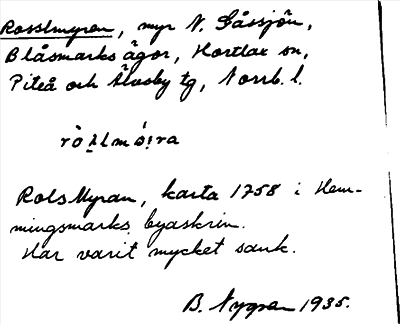 Rosslmyran, myr N. Gåssjön,
Blåsmarks ägor, Hortlax sn,
Piteå och Älvsby tg, Norrb. l.
Rols Myran, karta 1758 i Hem-
mingsmarks byaskrin.
Har varit mycket sank.
B. Nygren 1935.